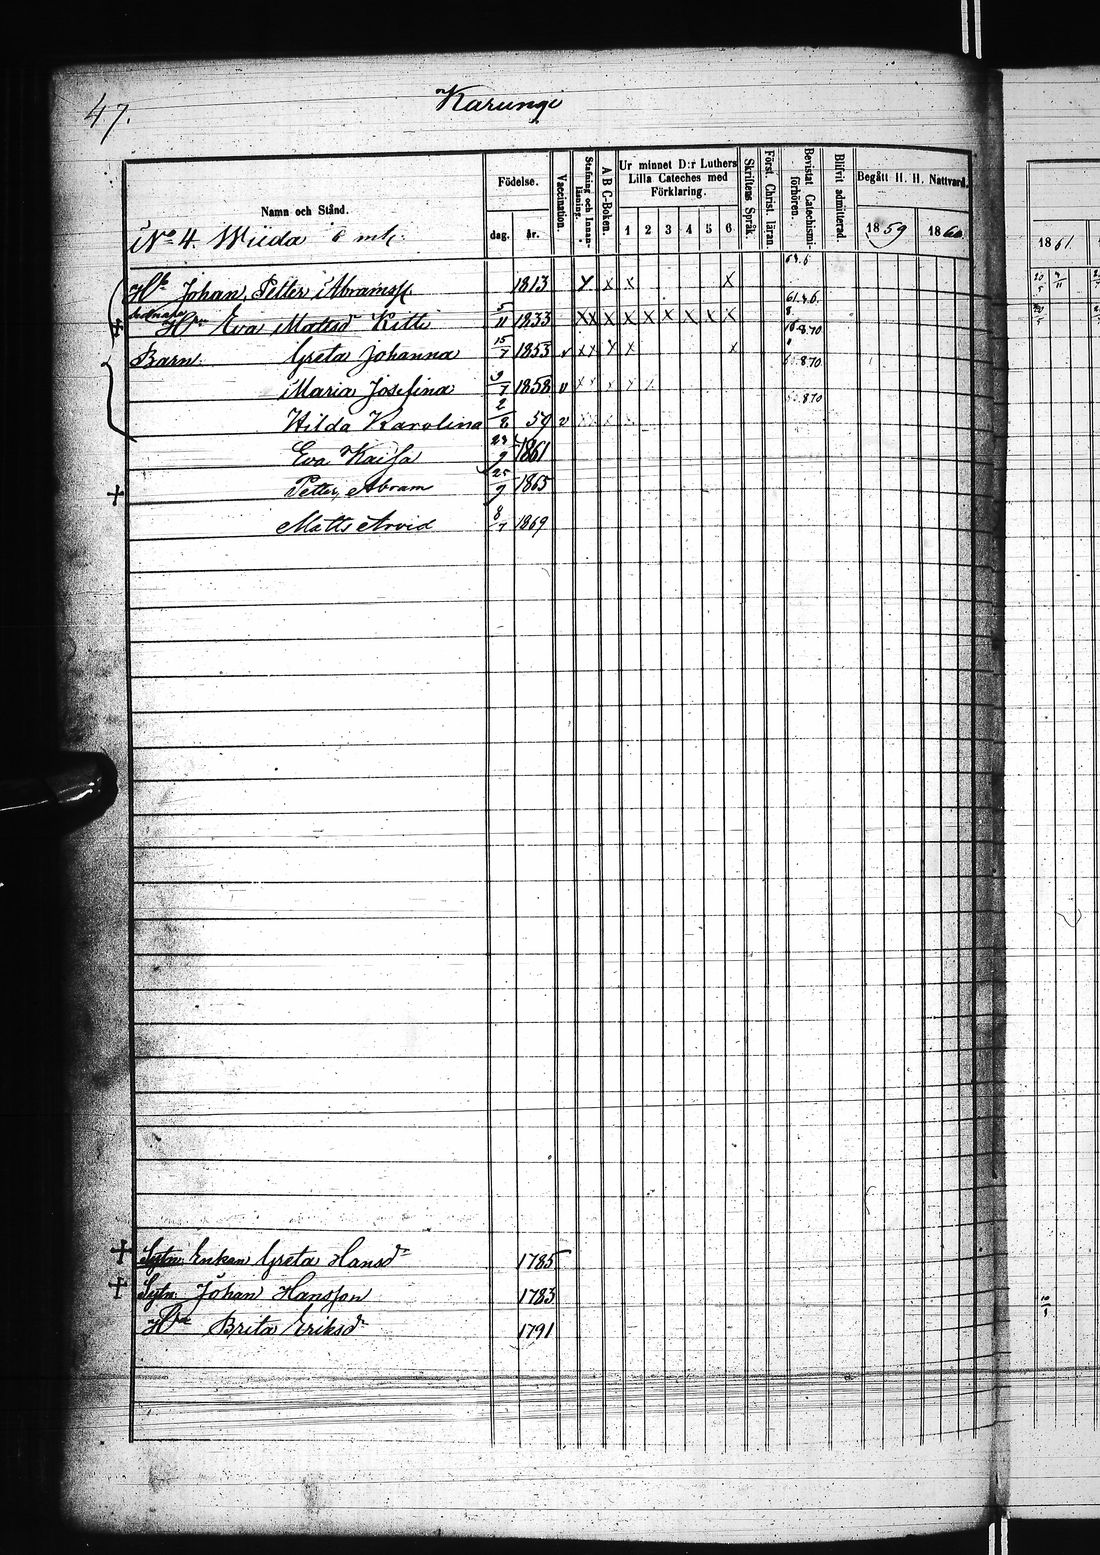 47.
Karungi
Namn och Stånd.
Födelse.
dag. år.
Vaccination.
Stafning och Innanläsning.
A B C-Boken.
Ur minnet D:r Luthers
Lilla Cateches med
Förklaring.
1 2 3 4 5 6
Skriftens Språk.
Först. Christ. läran.
Bevistat Catechismi-förhören.
Blifvit admitterad.
Begått H. H. Nattvard.
1859 1860
1861
No 4. Wiida 6 mtl.
Johan Petter Abramss. 1813 x x x x
Eva Matsd Kitti 5/11 1833 x x x x x x x x x
Barn. Greta Johanna 15/7 1853 v x x x x x
Maria Josefina 9/7 1858 v
Hilda Karolina 2/8 59 v
Eva Kaisa 1861
+ Petter Abram 25/9 1865
Matts Arvid 8/7 1869
+ Sytn. Enkan Greta Hansdr 1785
+ Sytn. Johan Hansson 1783
Brita Eriksdr 1791